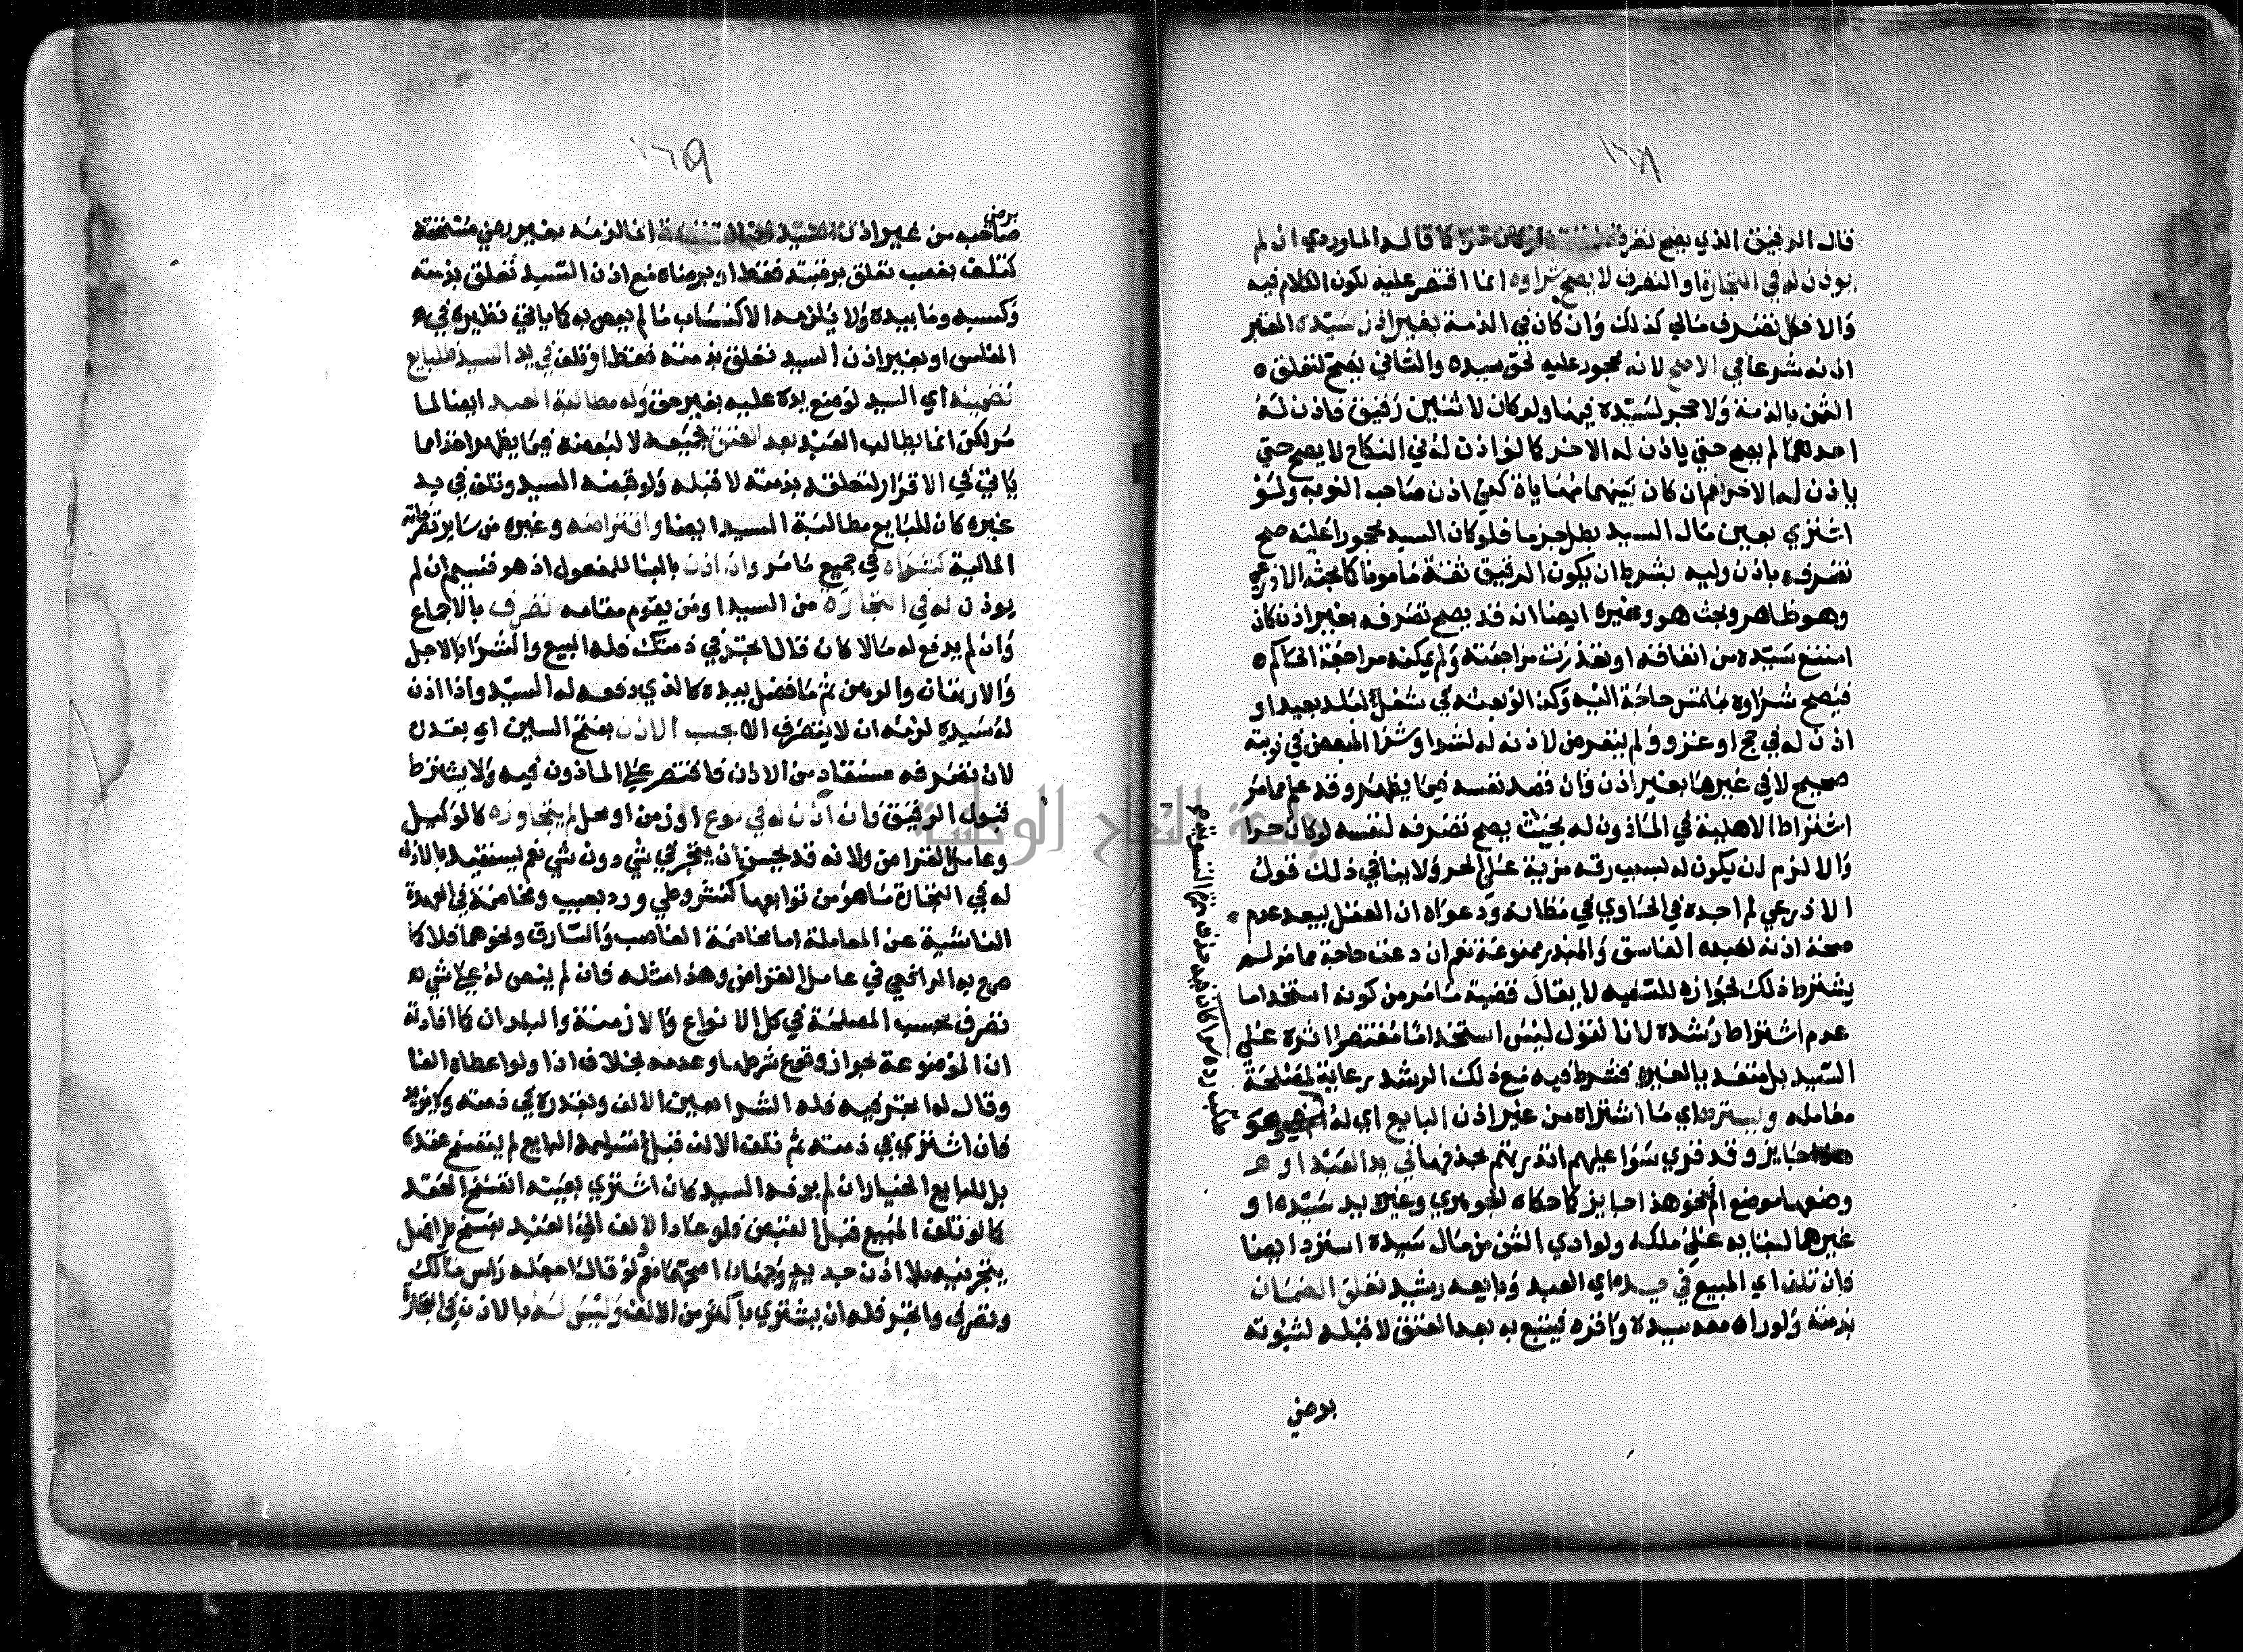 ١٦٨
قال الرقيق الذي يصح تصرفه لنفسه لو كان حرا كما قاله الماوردي ان لم
يوذن له في التجارة او التصرف لا يصح شراوه انما اقتصر عليه لكون الكلام فيه
والا فكل تصرف مالي كذلك وان كان في الذمة بغير اذن سيده المعتبر
اذنه شرعا في الاصح لانه محجور عليه لحق سيده والثاني يصح لتعلق ه
الثمن بالذمة ولا حجر لسيده فيها ولو كان لاثنين رقيق فاذن له
احدهما لم يصح حتي ياذن له الاخر كما لو اذن له في النكاح لا يصح حتي
ياذن له الاخر نعم ان كان بينهما مهاياة كفي اذن صاحب النوبه ولو
اشتري بعين مال السيد بطل جزما فلو كان السيد محجورا عليه صح
تصرفه باذن وليه بشرط ان يكون الرقيق ثقة مامونا كما بحثه الاذرعي
وهو ظاهر وبحث هو وغيره ايضا انه قد يصح تصرفه بغير اذن كان
امتنع سيده من انفاقه او تعذرت مراجعته ولم يمكنه مراجعة الحاكم ه
فيصح شراوه ما تمس حاجة اليه وكذا لو بعثه في شغل لبلد بعيد او
اذن له في حج او غزو ولم يتعرض لاذنه له لشرا وشرا المبعض في نوبته
صحيح لا في غيرها بغير اذن وان قصد نفسه فيما يظهر وقد علم مما مر
اشتراط الاهلية في الماذون له بحيث يصح تصرفه لنفسه لو كان حرا
والا لزم ان يكون له بسبب رقه مزية علي الحر ولا ينافي ذلك قول
الاذرعي لم اجده في الحاوي في مظانه ودعواه ان العقل يبعد عدم
صحة اذنه لعبده الفاسق والمبذر ممنوعة نعم ان دعت حاجة مما مر لم
يشترط ذلك لجوازه للسفيه لا يقال قضية مامر من كونه استخداما
عدم اشتراط رشده لانا نقول ليس استخداما مقتصرا اثره علي
السيد بل متعد للغير فشرط فيه مع ذلك الرشد رعاية لمصلحة
معامله ويسترده اي ما اشتراه من غير اذن البايع اي له وهو
جايز وقد قري سوا عليهم انذرتهم بحذفها في يد العبد او
وضعها موضع ام نحو هذا جايز كما حكاه الجوهري وغيره يد سيده او
غيرهما لبقايه علي ملكه ولو ادي الثمن من مال سيده استرد ايضا
فان تلف اي المبيع في يده اي العبد وبايعه رشيد تعلق الضمان
بذمته ولو راه معه سيده واقره فيتبع به بعد العتق لا قبله لثبوته
برضي
مطلب رده سوا كان فيه حذف همزة التسويه
١٦٩
برضي
صاحبه من غير اذن السيد انما لزمه بغير رضي مستحقه
كتلف بغصب تعلق برقبته فقط او برضاه مع اذن السيد تعلق بذمته
وكسبه وما بيده ولا يلزمه الاكتساب ما لم يعص به كما ياتي نظيره في
المفلس او بغير اذن السيد تعلق بذمته فقط او تلف في يد السيد فللبايع
تضمينه اي السيد لوضع يده عليه بغير حق وله مطالبة العبد ايضا لما
مر لكن انما يطالب العبد بعد العتق لجميعه لا لبعضه فيما يظهر اخذا مما
ياتي في الاقرار لتعلقه بذمته لا قبله ولو قبضه السيد وتلف في يد
غيره كان للبايع مطالبة السيد ايضا واقتراضه وغيره من ساير تصرفاته
المالية كشراه في جميع ما مر وان اذن بالبنا للمفعول اذ هو قسيم ان لم
يوذن له في التجارة من السيد او من يقوم مقامه تصرف بالاجماع
وان لم يدفع له مالا كان قال اتجر في ذمتك فله البيع والشرا بالاجل
والارتهان والرهن ثم ما فضل بيده كالذي دفعه له السيد واذا اذن
له سيده لزمه ان لا يتصرف الا بحسب الاذن بفتح السين اي بقدره
لان تصرفه مستفاد من الاذن فاقتصر علي الماذون فيه ولا يشترط
قبول الرقيق وان اذن له في نوع او زمن او محل لم يتجاوزه كالوكيل
وعامل القراض ولانه قد يحسن ان يتجر في شي دون شي نعم يستفيد بالاذن
له في التجارة ما هو من توابعها كنشر وطي ورد بعيب ومخاصمة في العهدة
الناشية عن المعاملة اما مخاصمة الغاصب والسارق ونحوهما فلا كما
صرح به الرافعي في عامل القراض وهذا مثله فان لم ينص له علي شي
تصرف بحسب المصلحة في كل الانواع والازمنة والبلدان كما افادته
ان الموضوعة لجواز وقوع شرطها وعدمه بخلاف اذا ولو اعطاه الفا
وقال له اتجر فيه فله الشرا بعين الالف وبقدره في ذمته ولا يزيد
فان اشتري في ذمته ثم تلف الالف قبل تسليمه البايع لم ينفسخ عقده
بل للبايع الخيار ان لم يوفه السيد كان اشتري بعينه انفسخ العقد
كما لو تلف المبيع قبل القبض ولو عاد الالف الي العبد بفسخ طرا فهل
يتجر فيه بلا اذن جديد وجهان اصحهما نعم ولو قال اجعله راس مالك
وتصرف واتجر فله ان يشتري باكثر من الالف وليس له بالاذن في التجارة